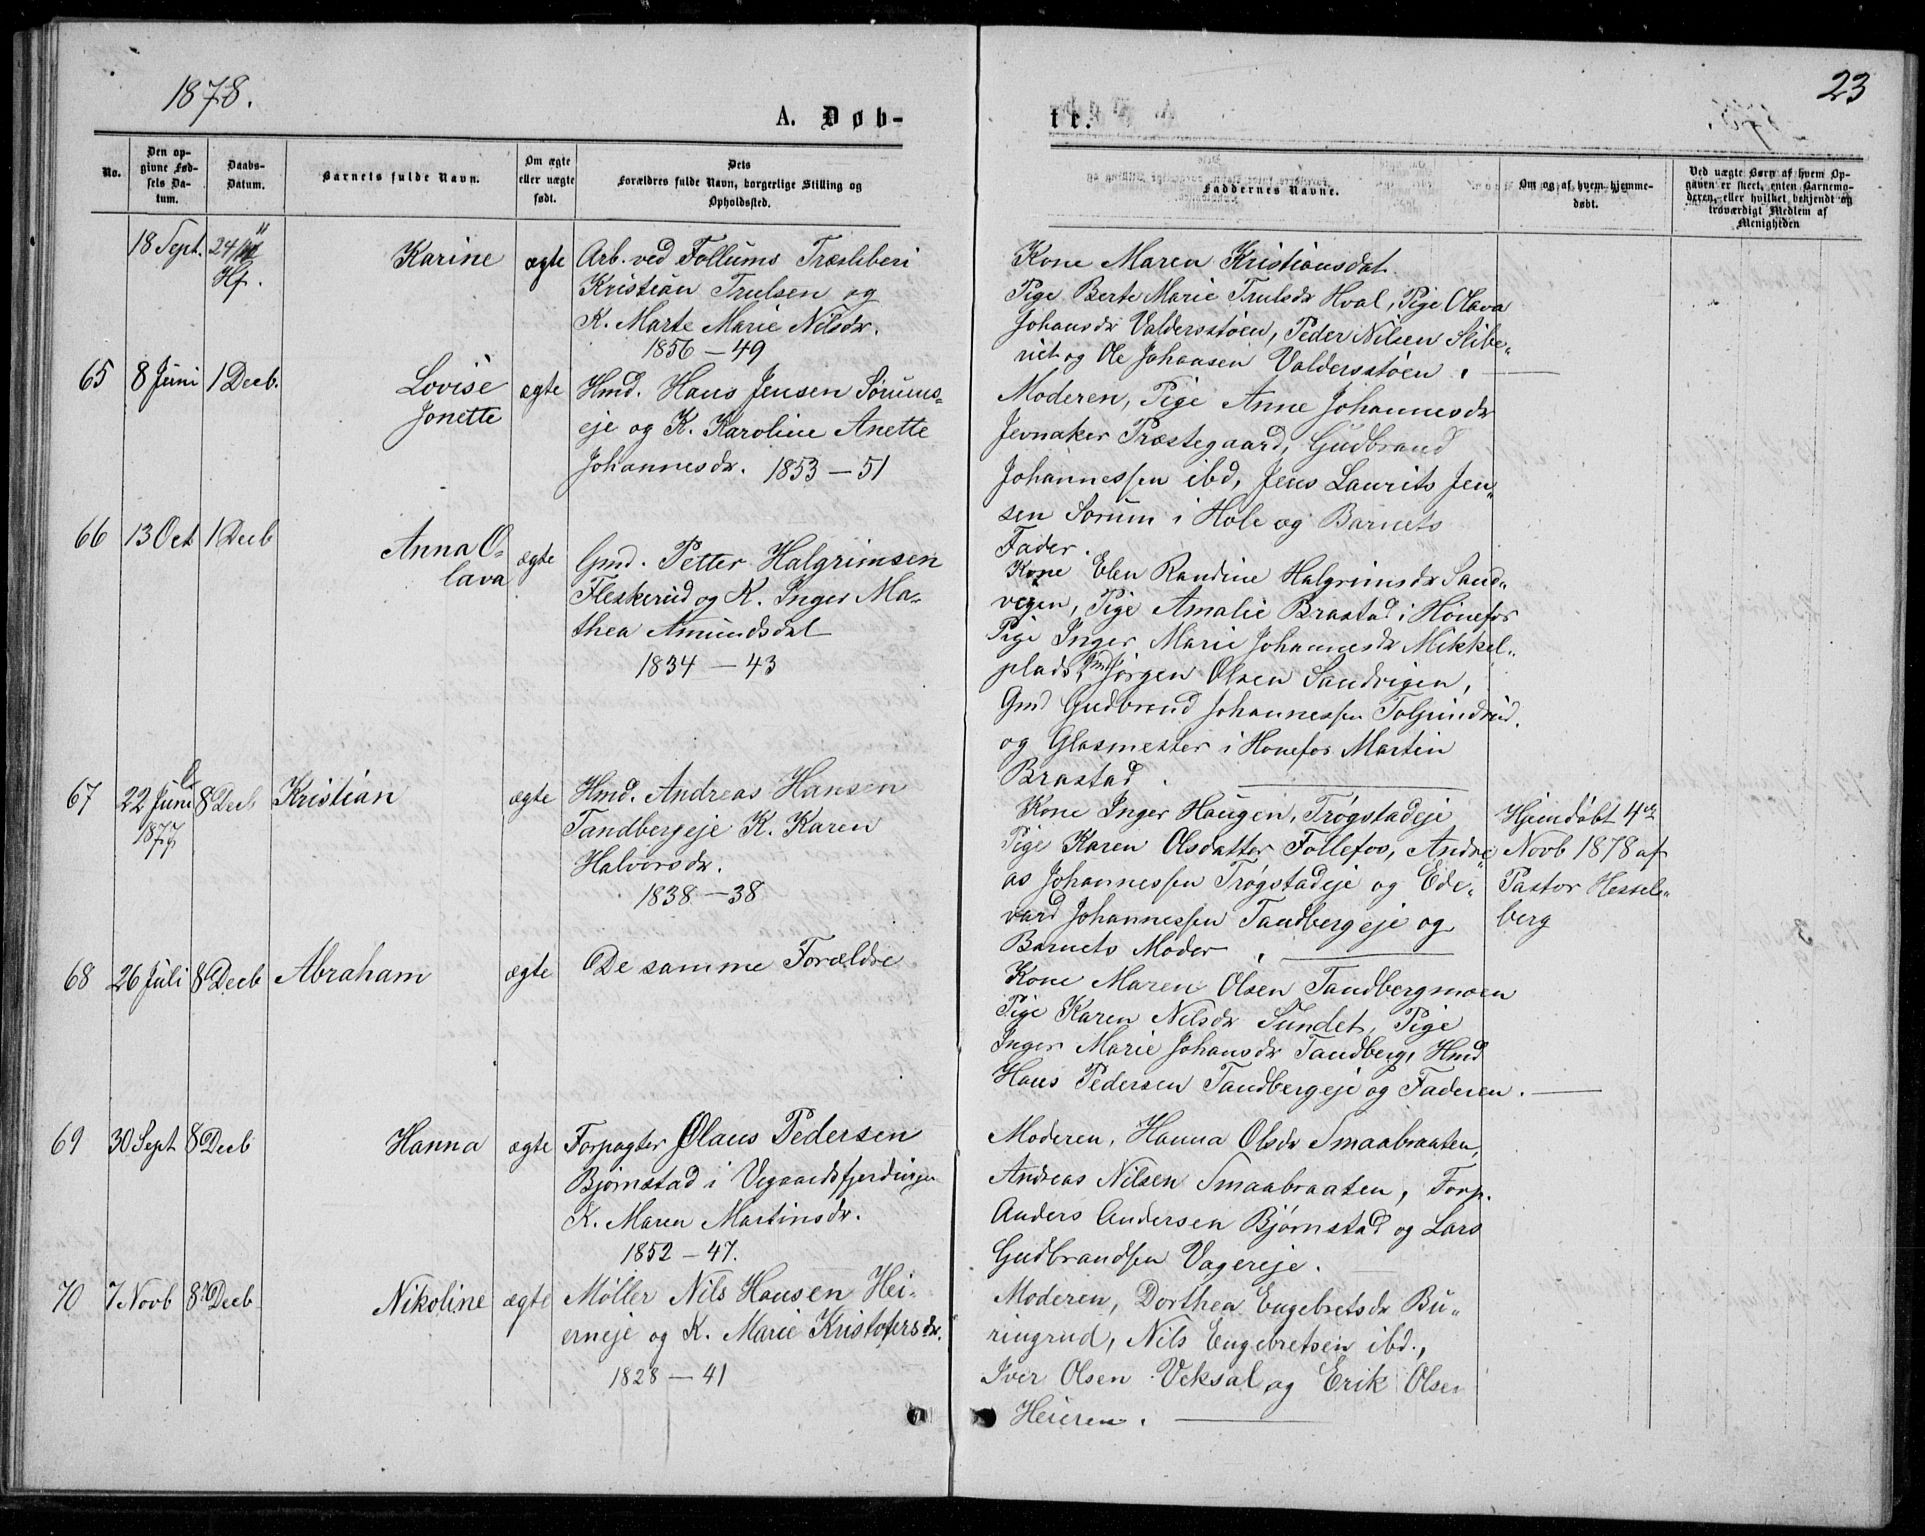 1878.
23
A. Døb-
te.
No.
Den op-
givne Fød-
sels Da-
tum.
Daabs-
Datum.
Barnets fulde Navn.
Om ægte
eller uægte
født.
Dets
Forældres fulde Navn, borgerlige Stilling og
Opholdssted.
Faddernes Navne.
Om og af hvem hjemme-
døbt.
Ved uægte Børn af hvem Op-
gaven er skeet, enten Barnemo-
deren, eller hvilket bekjendt og
troværdigt Medlem af
Menigheden
18 Sept. 24/11
Hf.
Karine ægte
Arb. ved Follums Træsliberi
Kristian Trulsen og
K. Marte Marie Nilsdr.
1856 – 49
Kone Maren Kristiansdat.
Pige Berte Marie Trulsdr Hval, Pige Olava
Johansdr Valdersstøen, Peder Nilsen Slibe-
riet og Ole Johansen Valdersstøen.
65 8 Juni 1 Decb.
Lovise
Jonette
ægte
Hmd. Hans Jensen Sørums-
eje og K. Karoline Anette
Johannesdr. 1853 – 51
Moderen, Pige Anne Johannesdr
Jevnaker Præstegaard, Gudbrand
Johannessen ibd, Jens Laurits Jen-
sen Sørum i Hole og Barnets
Fader.
66 13 Oct 1 Decb
Anna O-
lava
ægte
Gmd. Petter Halgrimsen
Fleskerud og K. Inger Ma-
thea Amundsdat
1834 – 43
Kone Elen Randine Halgrimsdr Sand-
vigen, Pige Amalie Brastad i Hönefos
Pige Inger Marie Johannesdr Mikkel-
plads, Gmd Jörgen Olsen Sandvigen,
Gmd Gudbrand Johannessen Tolpinrud.
og Glasmester i Honefos Martin
Brastad.
67 22 Juni 8 Decb
1877
Kristian ægte
Hmd. Andreas Hansen
Tandbergeje K. Karen
Halvorsdr.
1838 – 38
Kone Inger Haugen, Trøgstadeje
Pige Karen Olsdatter Follefos, Andre-
as Johannessen Trøgstadeje og Ede-
vard Johannessen Tandbergeje og
Barnets Moder.
Hjemdøbt 4de
Novb 1878 af
Pastor Hessel-
berg
68 26 Juli 8 Decb Abraham ægte De samme Forældre
Kone Maren Olsen Tandbergmoen
Pige Karen Nilsdr Sundet, Pige
Inger Marie Johansdr Tandberg, Hmd
Hans Pedersen Tandbergeje og Faderen.
69 30 Sept 8 Decb Hanna ægte
Forpagter Olaus Pedersen
Bjørnstad i Vegaardsfjerdingen
K. Maren Martinsdr.
1852 – 47.
Moderen, Hanna Olsdr Smaabraaten,
Andreas Nilsen Smaabraaten, Forp.
Anders Andersen Bjørnstad og Lars
Gudbrandsen Vagereje.
70 7 Novb 8 Decb Nikoline ægte
Møller Nils Hansen Hei-
erneje og K. Marie Kristofersdr.
1828 – 41
Moderen, Dorthea Engebretsdr Bu-
ringrud, Nils Engebretsen ibd.,
Iver Olsen Veksal og Erik Olsen
Heieren.